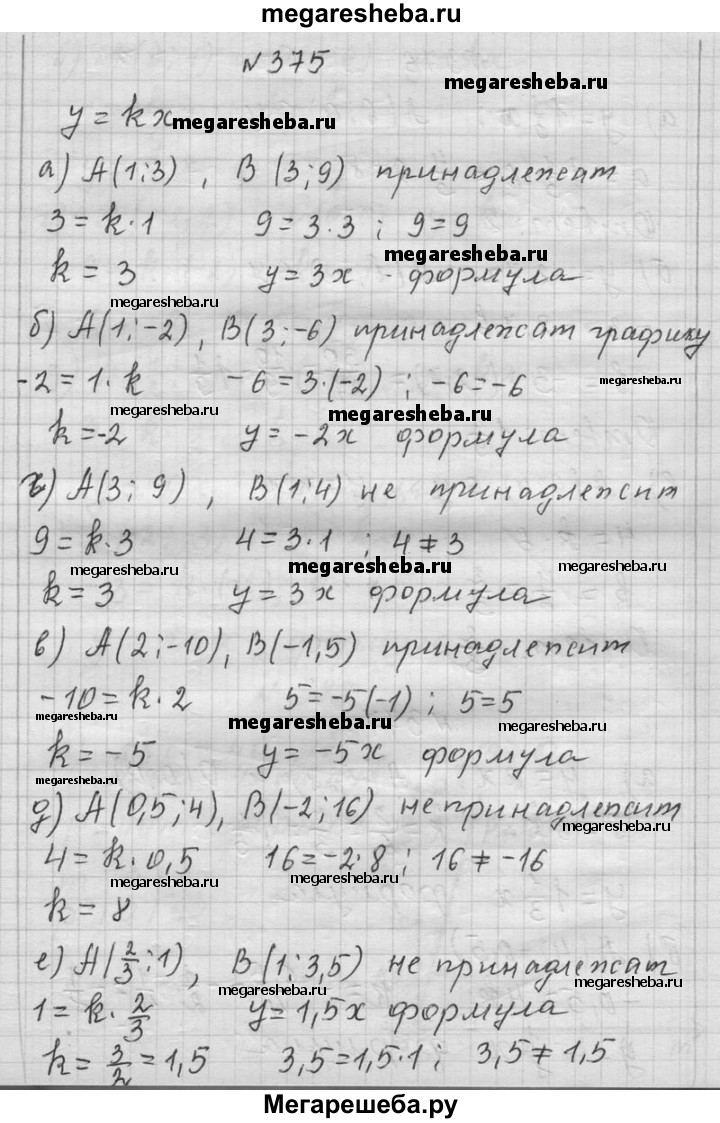 megaresheba.ru
№375
megaresheba.ru
y = kx megaresheba.ru
а) A(1;3) , B (3;9) принадлежат
3 = k·1 9 = 3·3 ; 9 = 9
megaresheba.ru
k = 3 y = 3x - формула
megaresheba.ru megaresheba.ru
б) A(1;-2) , B(3;-6) принадлежат графику
-2 = 1·k -6 = 3·(-2) ; -6 = -6
megaresheba.ru
megaresheba.ru megaresheba.ru
k = -2 y = -2x формула
г) A(3; 9) , B(1;4) не принадлежит
9 = k·3 4 = 3·1 ; 4 ≠ 3
megaresheba.ru megaresheba.ru megaresheba.ru
k = 3 y = 3x формула
в) A(2;-10), B(-1,5) принадлежит
megaresheba.ru
-10 = k·2 5 = -5(-1) ; 5 = 5
megaresheba.ru megaresheba.ru megaresheba.ru
k = -5 y = -5x формула
megaresheba.ru
д) A(0,5;4), B(-2;16) не принадлежит
megaresheba.ru
4 = k·0,5 16 = -2·8 ; 16 ≠ -16
megaresheba.ru megaresheba.ru
k = 8
е) A(2/3;1) , B(1;3,5) не принадлежат
megaresheba.ru megaresheba.ru
1 = k·2/3 y = 1,5x формула
k = 3/2 = 1,5 3,5 = 1,5·1 ; 3,5 ≠ 1,5
Мегарешеба.ру